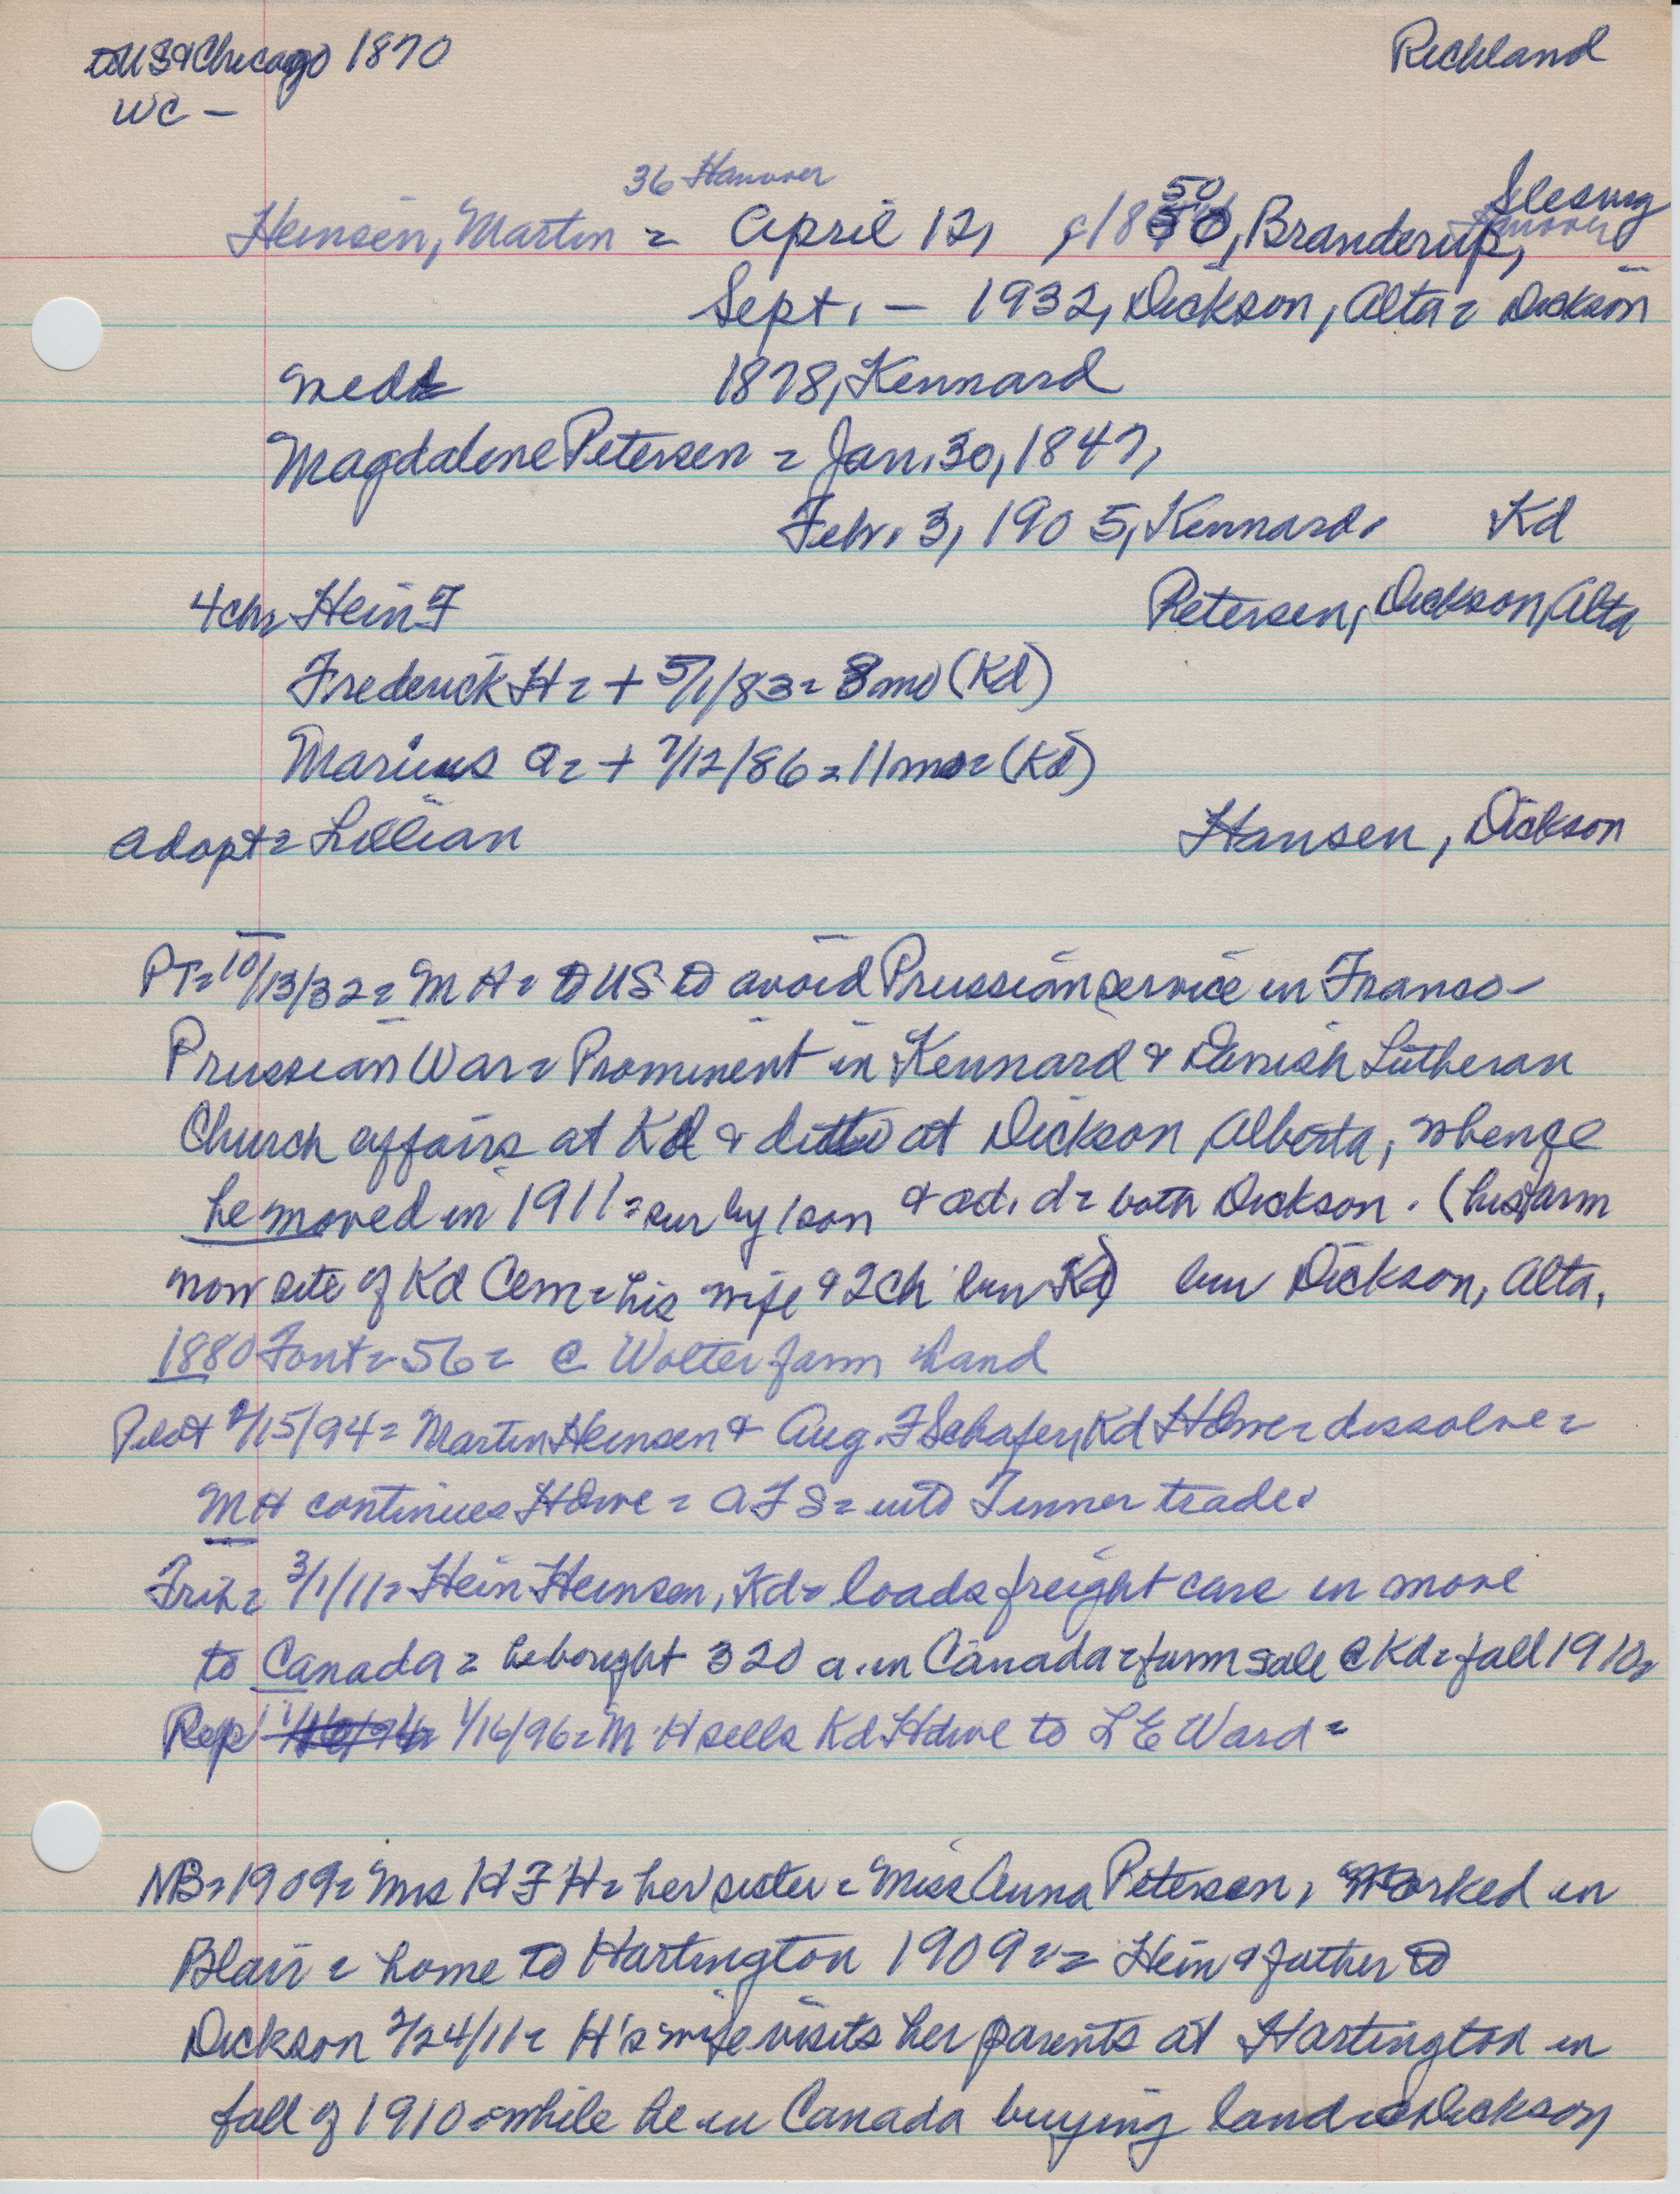 to US & Chicago 1870 Richland
WC —
36 Hanover Slesvig
Heinsen, Martin = April 12, c/1850, Branderup,
Sept. — 1932, Dickson, Alta = Dickson
medt 1878, Kennard
Magdalene Petersen = Jan. 30, 1847,
Feb. 3, 1905, Kennard. Kd
4 ch = Hein F Petersen, Dickson, Alta
Frederick H = + 5/1/83 = 8 mo (Kd)
Marius A = + 7/12/86 = 11 mo = (Kd)
adopt = Lillian Hansen, Dickson
PT = 10/13/32 = M H = to US to avoid Prussian service in Franco-
Prussian War = Prominent in Kennard & Danish Lutheran
Church affairs at Kd & ditto at Dickson, Alberta, whence
he moved in 1911 = sur by 1 son & ad. d = both Dickson. (his farm
now site of Kd Cem = his wife & 2 ch bur Kd) bur Dickson, Alta.
1880 Font = 56 = @ Wolter farm hand
Pilot 2/15/94 = Martin Heinsen & Aug. F Schafer, Kd Hdwe = dissolve =
MH continues Hdwe = A F S = into Tinner trade.
Trib = 3/1/11 = Hein Heinsen, Kd = loads freight cars in move
to Canada = he bought 320 a. in Canada = farm sale @ Kd = fall 1910 =
Rep 1/16/96 = M H sells Kd Hdwe to L E Ward =
NB = 1909 = Mrs H F H = her sister = Miss Anna Petersen, worked in
Blair = home to Hartington 1909 = = Hein & father to
Dickson 2/24/11 = H's wife visits her parents at Hartington in
fall of 1910 = while he in Canada buying land @ Dickson